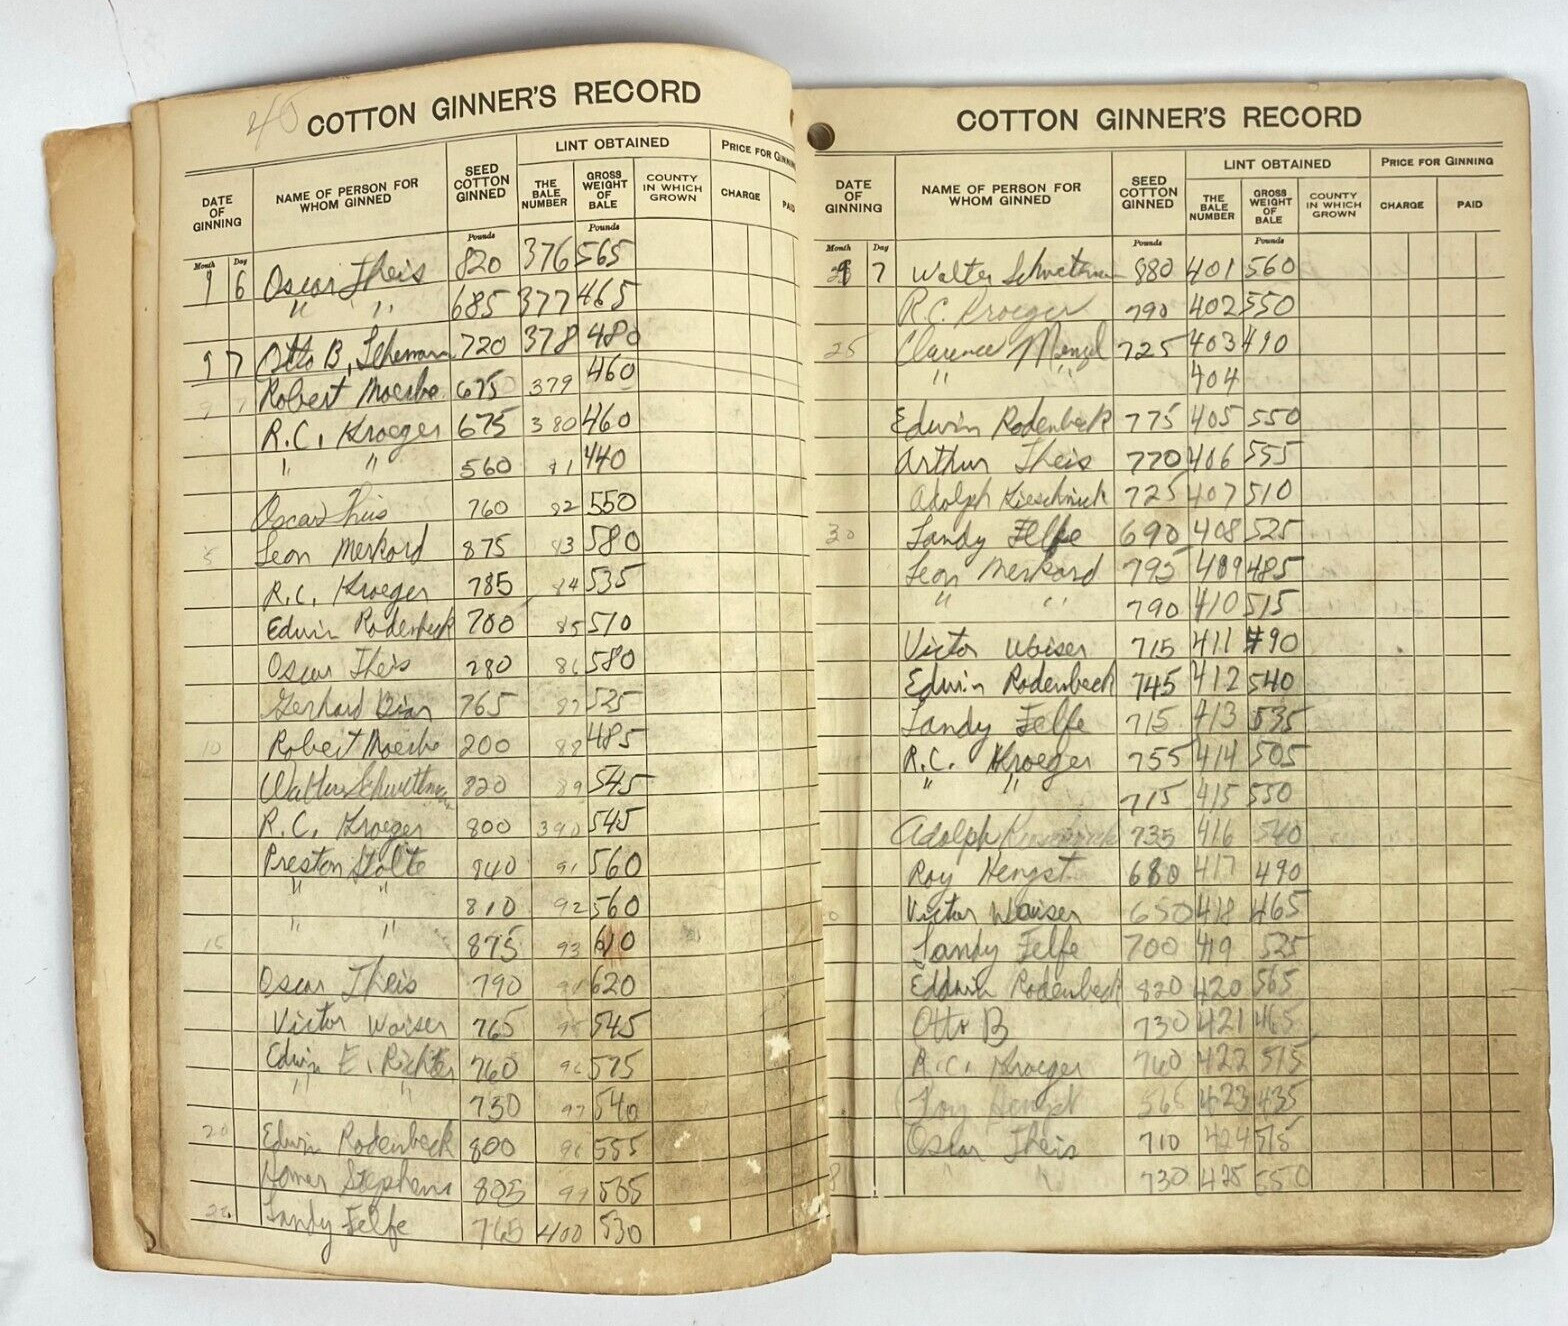 40
COTTON GINNER'S RECORD
DATE OF GINNING NAME OF PERSON FOR WHOM GINNED SEED COTTON GINNED LINT OBTAINED THE BALE NUMBER GROSS WEIGHT OF BALE COUNTY IN WHICH GROWN PRICE FOR GINNING CHARGE PAID
Month Day Pounds Pounds
9 6 Oscar Theis 820 376 565
" " 685 377 465
9 7 Otto B. 720 378 480
Robert Moerbe 675 379 460
R.C. Kroeger 675 380 460
" " 560 81 440
Oscar Theis 760 82 550
5 Leon Merkord 875 83 580
R.C. Kroeger 785 84 535
Edwin Rodenbeck 700 85 510
Oscar Theis 780 86 580
Gerhard 765 87 525
10 Robert Moerbe 200 88 485
820 89 545
R.C. Kroeger 800 390 545
Preston Stolte 840 91 560
" " 810 92 560
" " 875 93 610
15
Oscar Theis 790 620
Victor Waiser 765 545
Edwin E. Richter 760 96 575
" " 730 97 540
20 Edwin Rodenbeck 800 555
Homer Stephens 805 565
Landy Felfe 765 400 530
COTTON GINNER'S RECORD
DATE OF GINNING NAME OF PERSON FOR WHOM GINNED SEED COTTON GINNED LINT OBTAINED THE BALE NUMBER GROSS WEIGHT OF BALE COUNTY IN WHICH GROWN PRICE FOR GINNING CHARGE PAID
Month Day Pounds Pounds
9 7 Walter 880 401 560
R.C. Kroeger 790 402 550
25 Clarence Menzel 725 403 490
" " 404
Edwin Rodenbeck 775 405 550
Arthur Theis 770 406 555
Adolph 725 407 510
30 Landy Felfe 690 408 525
Leon Merkord 795 409 485
" " 790 410 515
Victor Waiser 715 411 490
Edwin Rodenbeck 745 412 540
Landy Felfe 715 413 535
R.C. Kroeger 755 414 505
" " 715 415 550
Adolph 735 416 540
Roy Hengst 680 417 490
Victor Waiser 650 418 465
Landy Felfe 700 419 525
Eddwin Rodenbeck 820 420 565
Otto B 730 421 465
R.C. Kroeger 740 422 515
Roy Hengst 565 423 435
Oscar Theis 710 424 515
" " 730 425 550